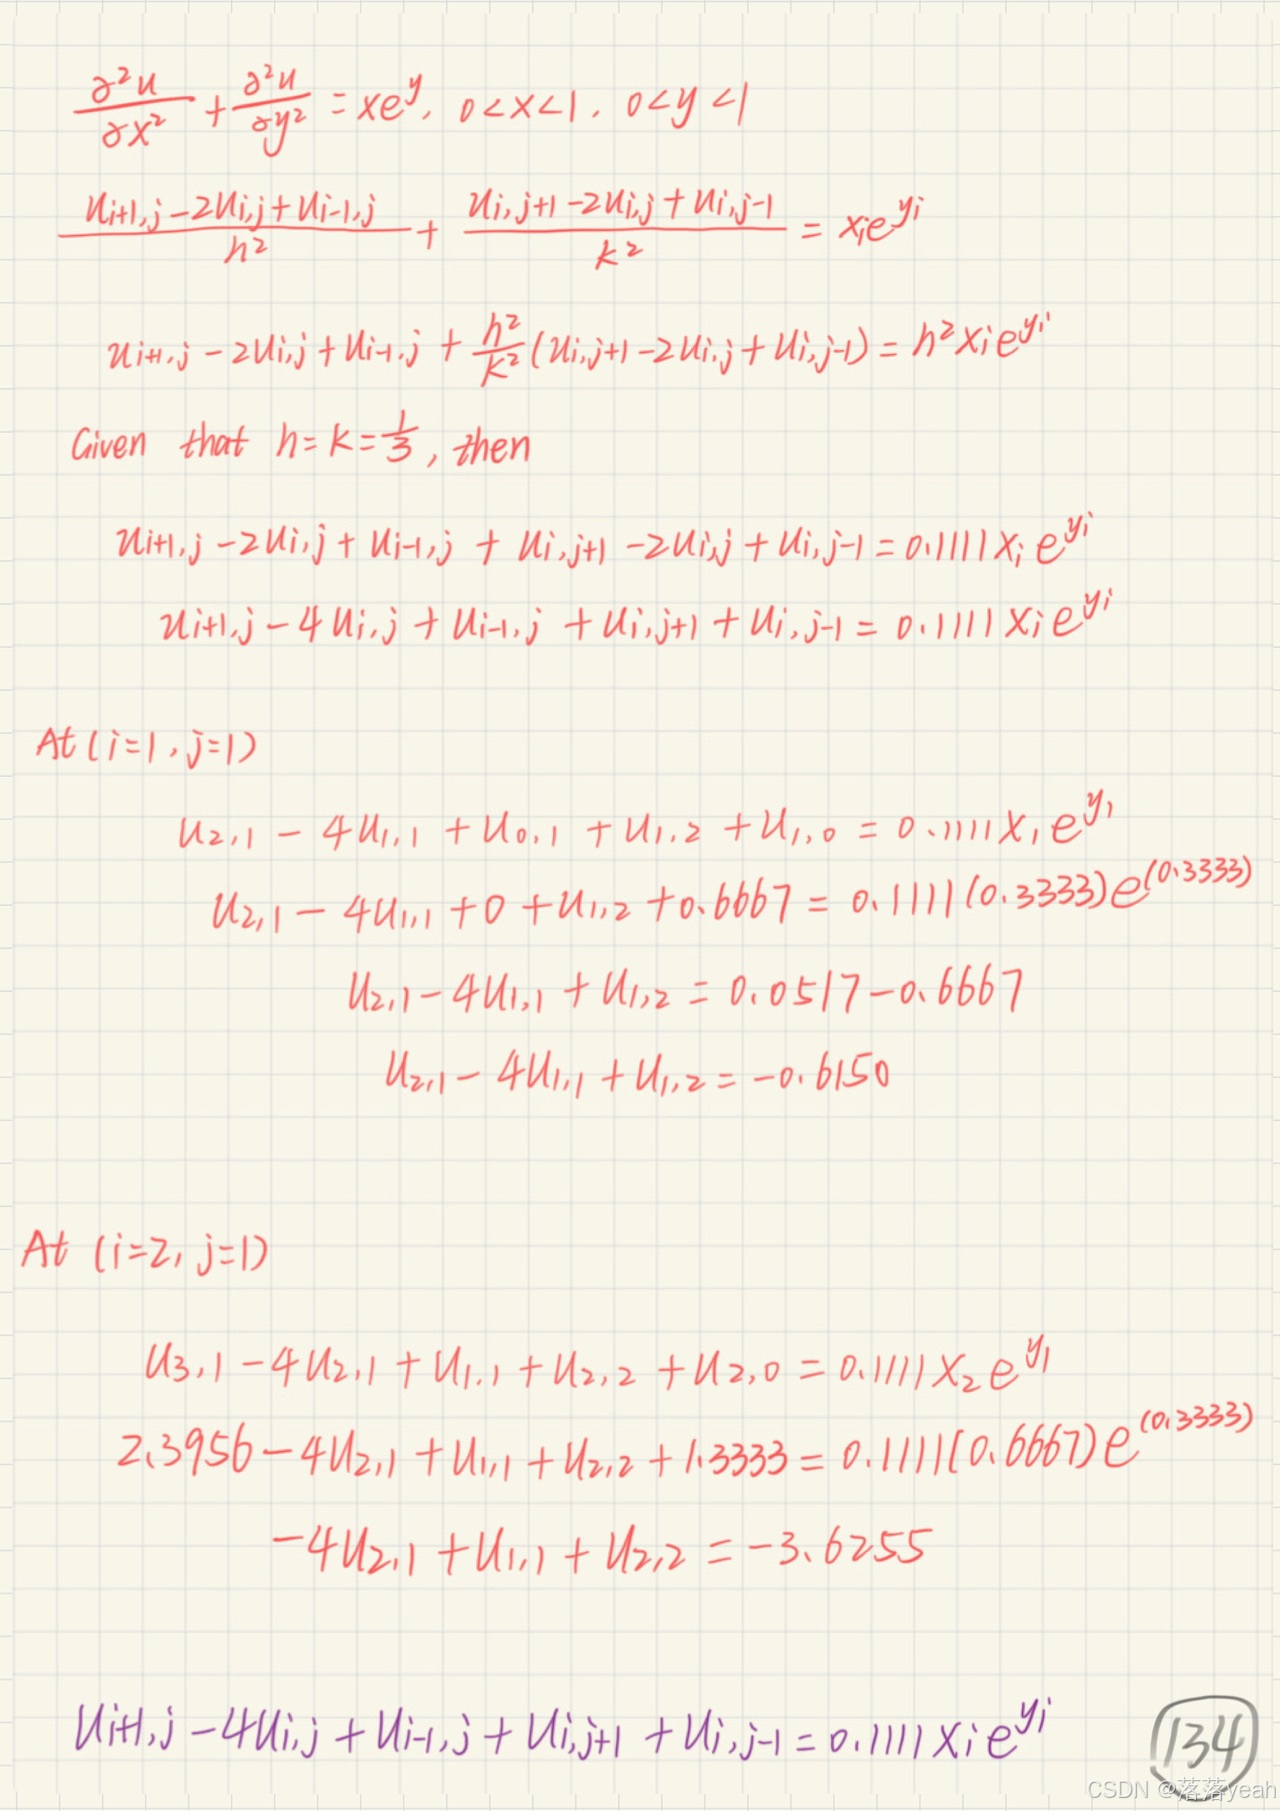 ∂²u/∂x² + ∂²u/∂y² = xe^y, 0<x<1, 0<y<1
(u_{i+1,j} - 2u_{i,j} + u_{i-1,j})/h² + (u_{i,j+1} - 2u_{i,j} + u_{i,j-1})/k² = x_i e^{y_i}
u_{i+1,j} - 2u_{i,j} + u_{i-1,j} + h²/k² (u_{i,j+1} - 2u_{i,j} + u_{i,j-1}) = h² x_i e^{y_i}
Given that h = k = 1/3, then
u_{i+1,j} - 2u_{i,j} + u_{i-1,j} + u_{i,j+1} - 2u_{i,j} + u_{i,j-1} = 0.1111 x_i e^{y_i}
u_{i+1,j} - 4u_{i,j} + u_{i-1,j} + u_{i,j+1} + u_{i,j-1} = 0.1111 x_i e^{y_i}
At (i=1, j=1)
u_{2,1} - 4u_{1,1} + u_{0,1} + u_{1,2} + u_{1,0} = 0.1111 x_1 e^{y_1}
u_{2,1} - 4u_{1,1} + 0 + u_{1,2} + 0.6667 = 0.1111(0.3333)e^{(0.3333)}
u_{2,1} - 4u_{1,1} + u_{1,2} = 0.0517 - 0.6667
u_{2,1} - 4u_{1,1} + u_{1,2} = -0.6150
At (i=2, j=1)
u_{3,1} - 4u_{2,1} + u_{1,1} + u_{2,2} + u_{2,0} = 0.1111 x_2 e^{y_1}
2.3956 - 4u_{2,1} + u_{1,1} + u_{2,2} + 1.3333 = 0.1111(0.6667)e^{(0.3333)}
-4u_{2,1} + u_{1,1} + u_{2,2} = -3.6255
u_{i+1,j} - 4u_{i,j} + u_{i-1,j} + u_{i,j+1} + u_{i,j-1} = 0.1111 x_i e^{y_i}
134
CSDN @落落yeah